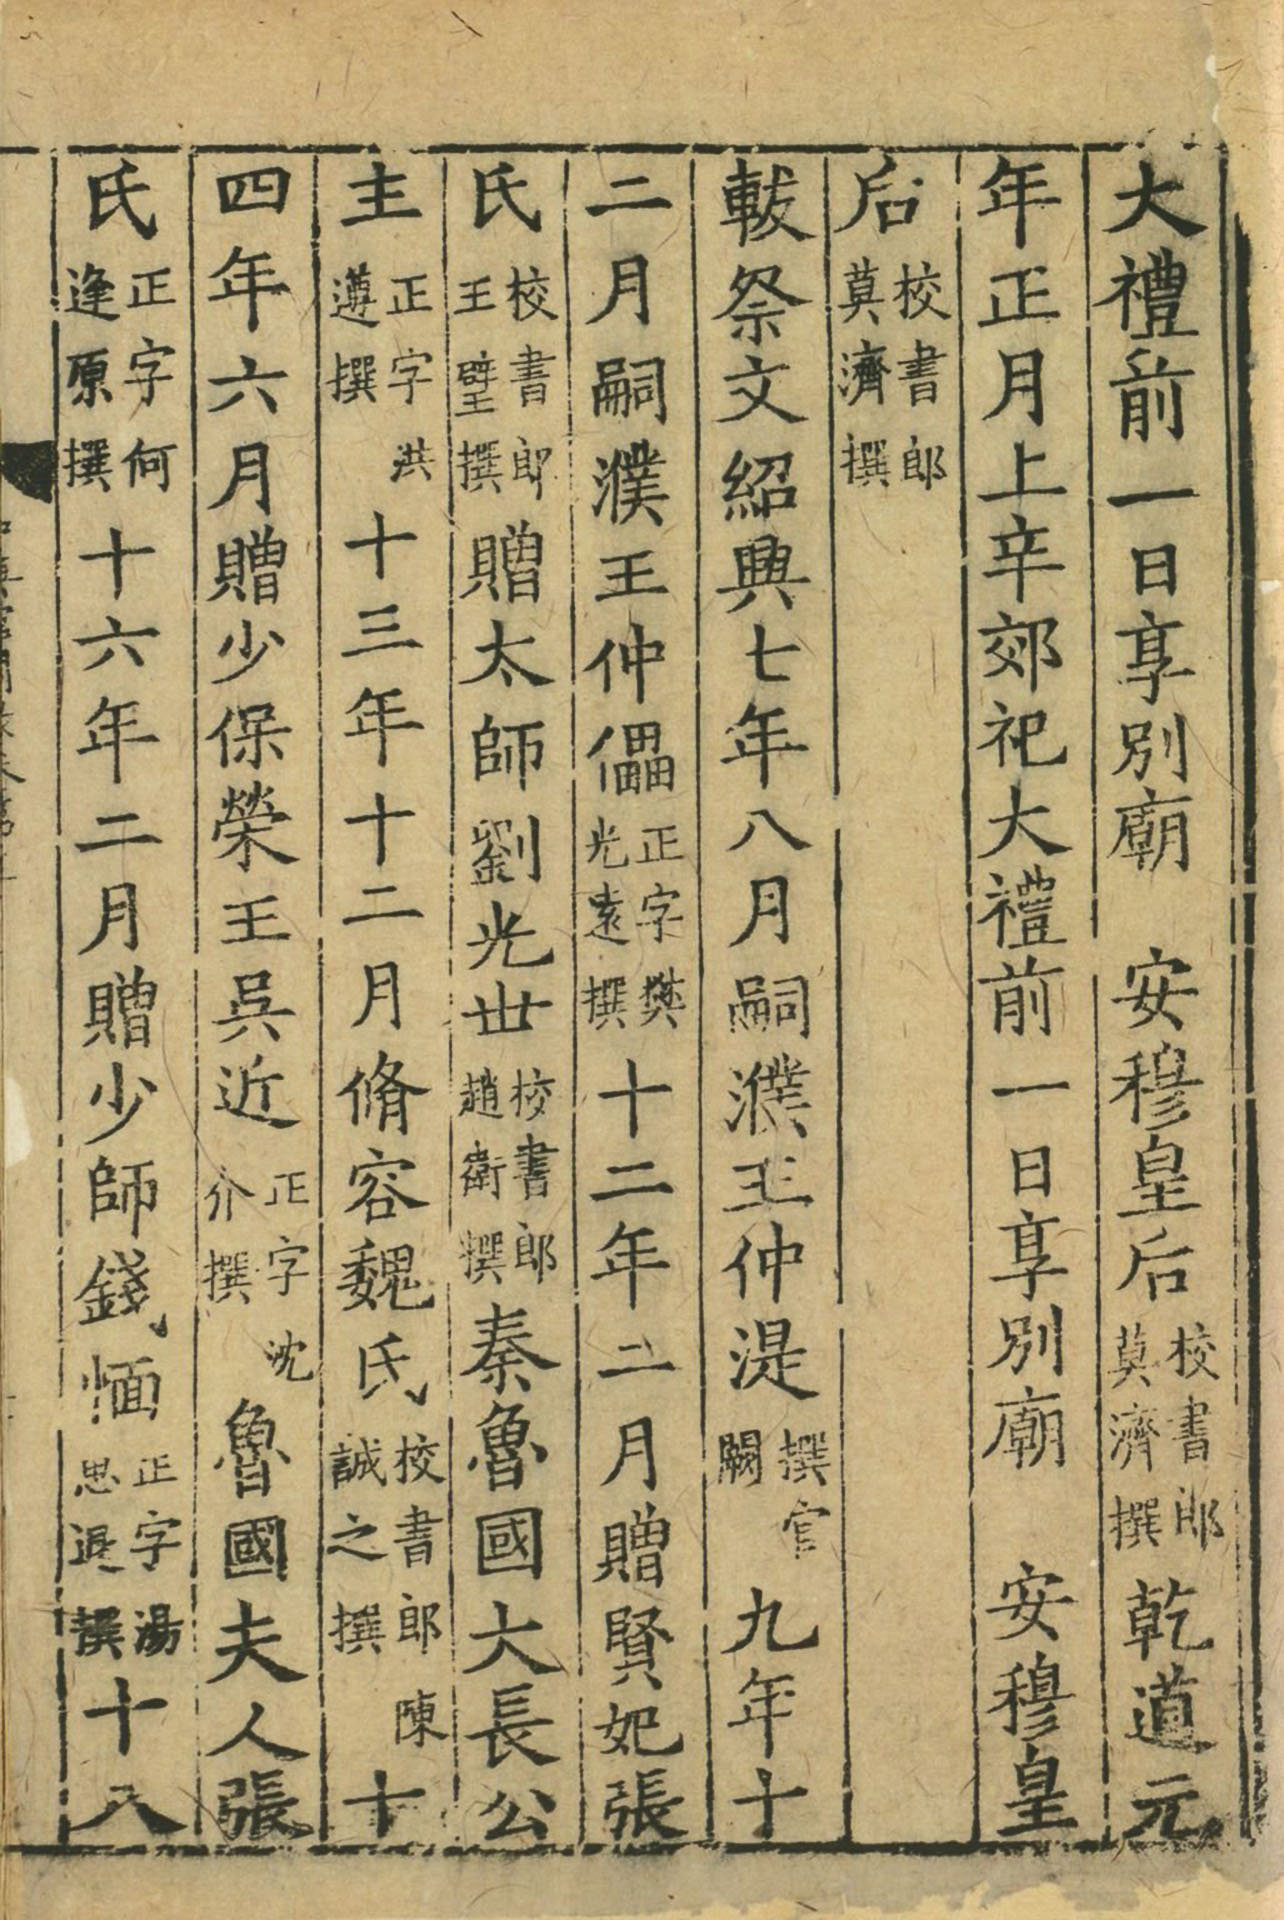 大禮前一日享別廟　安穆皇后校書郎莫濟撰乾道元
年正月上辛郊祀大禮前一日享別廟　安穆皇
后校書郎莫濟撰
軷祭文紹興七年八月嗣濮王仲湜撰官闕九年十
二月嗣濮王仲儡正字樊光遠撰十二年二月贈賢妃張
氏校書郎王璧撰贈太師劉光世校書郎趙衛撰秦魯國大長公
主正字洪遵撰十三年十二月脩容魏氏校書郎陳誠之撰十
四年六月贈少保榮王吳近正字沈介撰魯國夫人張
氏正字何逢原撰十六年二月贈少師錢愐正字湯思退撰十八